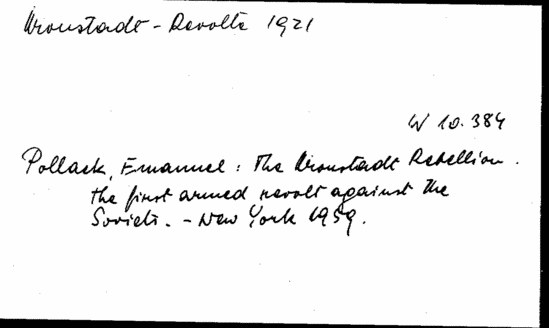 Kronstadt - Revolte 1921
W 10.384
Pollack, Emanuel: The Kronstadt Rebellion.
the first armed revolt against the
Soviets. - New York 1959.